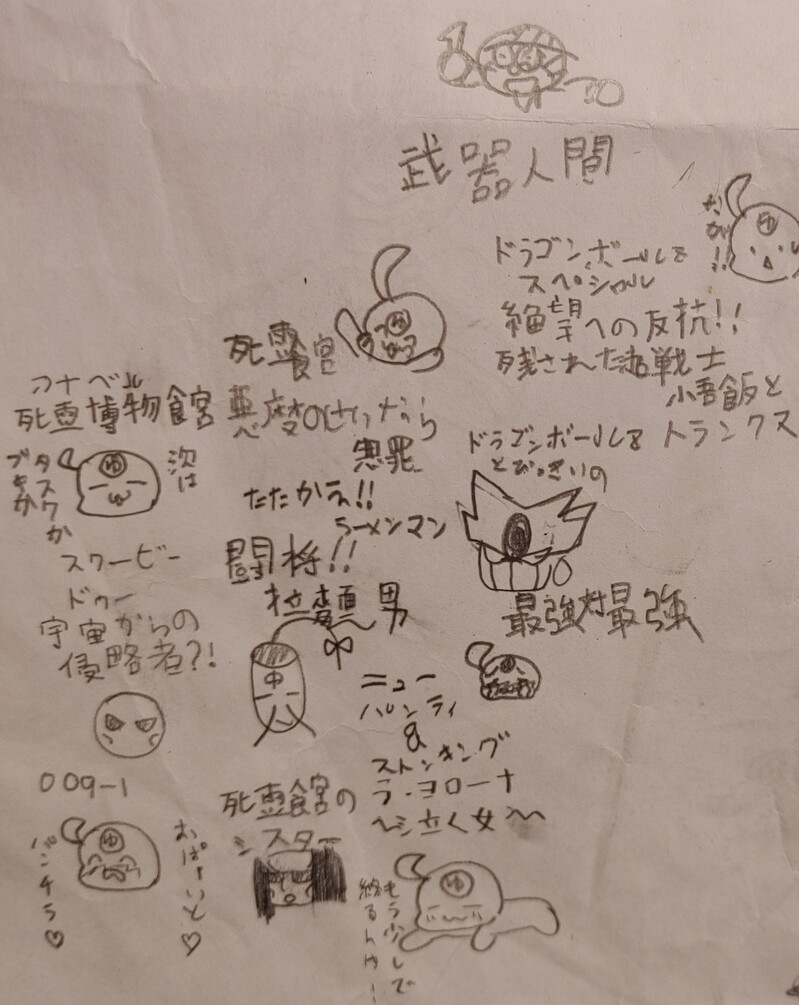 武器人間
だが!!
ドラゴンボールZ
スペシャル
絶望への反抗!!
残された超戦士
小吾飯と
トランクス
死霊館
ゆ
アナベル
死霊博物館
悪魔のせいなら
無罪
次は
ゆ
たたかえ!!
ラーメンマン
闘将!!
拉麺男
中
ドラゴンボールZ
とびっきりの
最強対最強
スクービー
ドゥー
宇宙からの
侵略者?!
ニュー
パンティ
&
ストッキング
ラ・ヨローナ
〜泣く女〜
009-1
ゆ
パンチラ♡
おぱーいと♡
死霊館の
シスター
ゆ
もう少しで
終るんやー